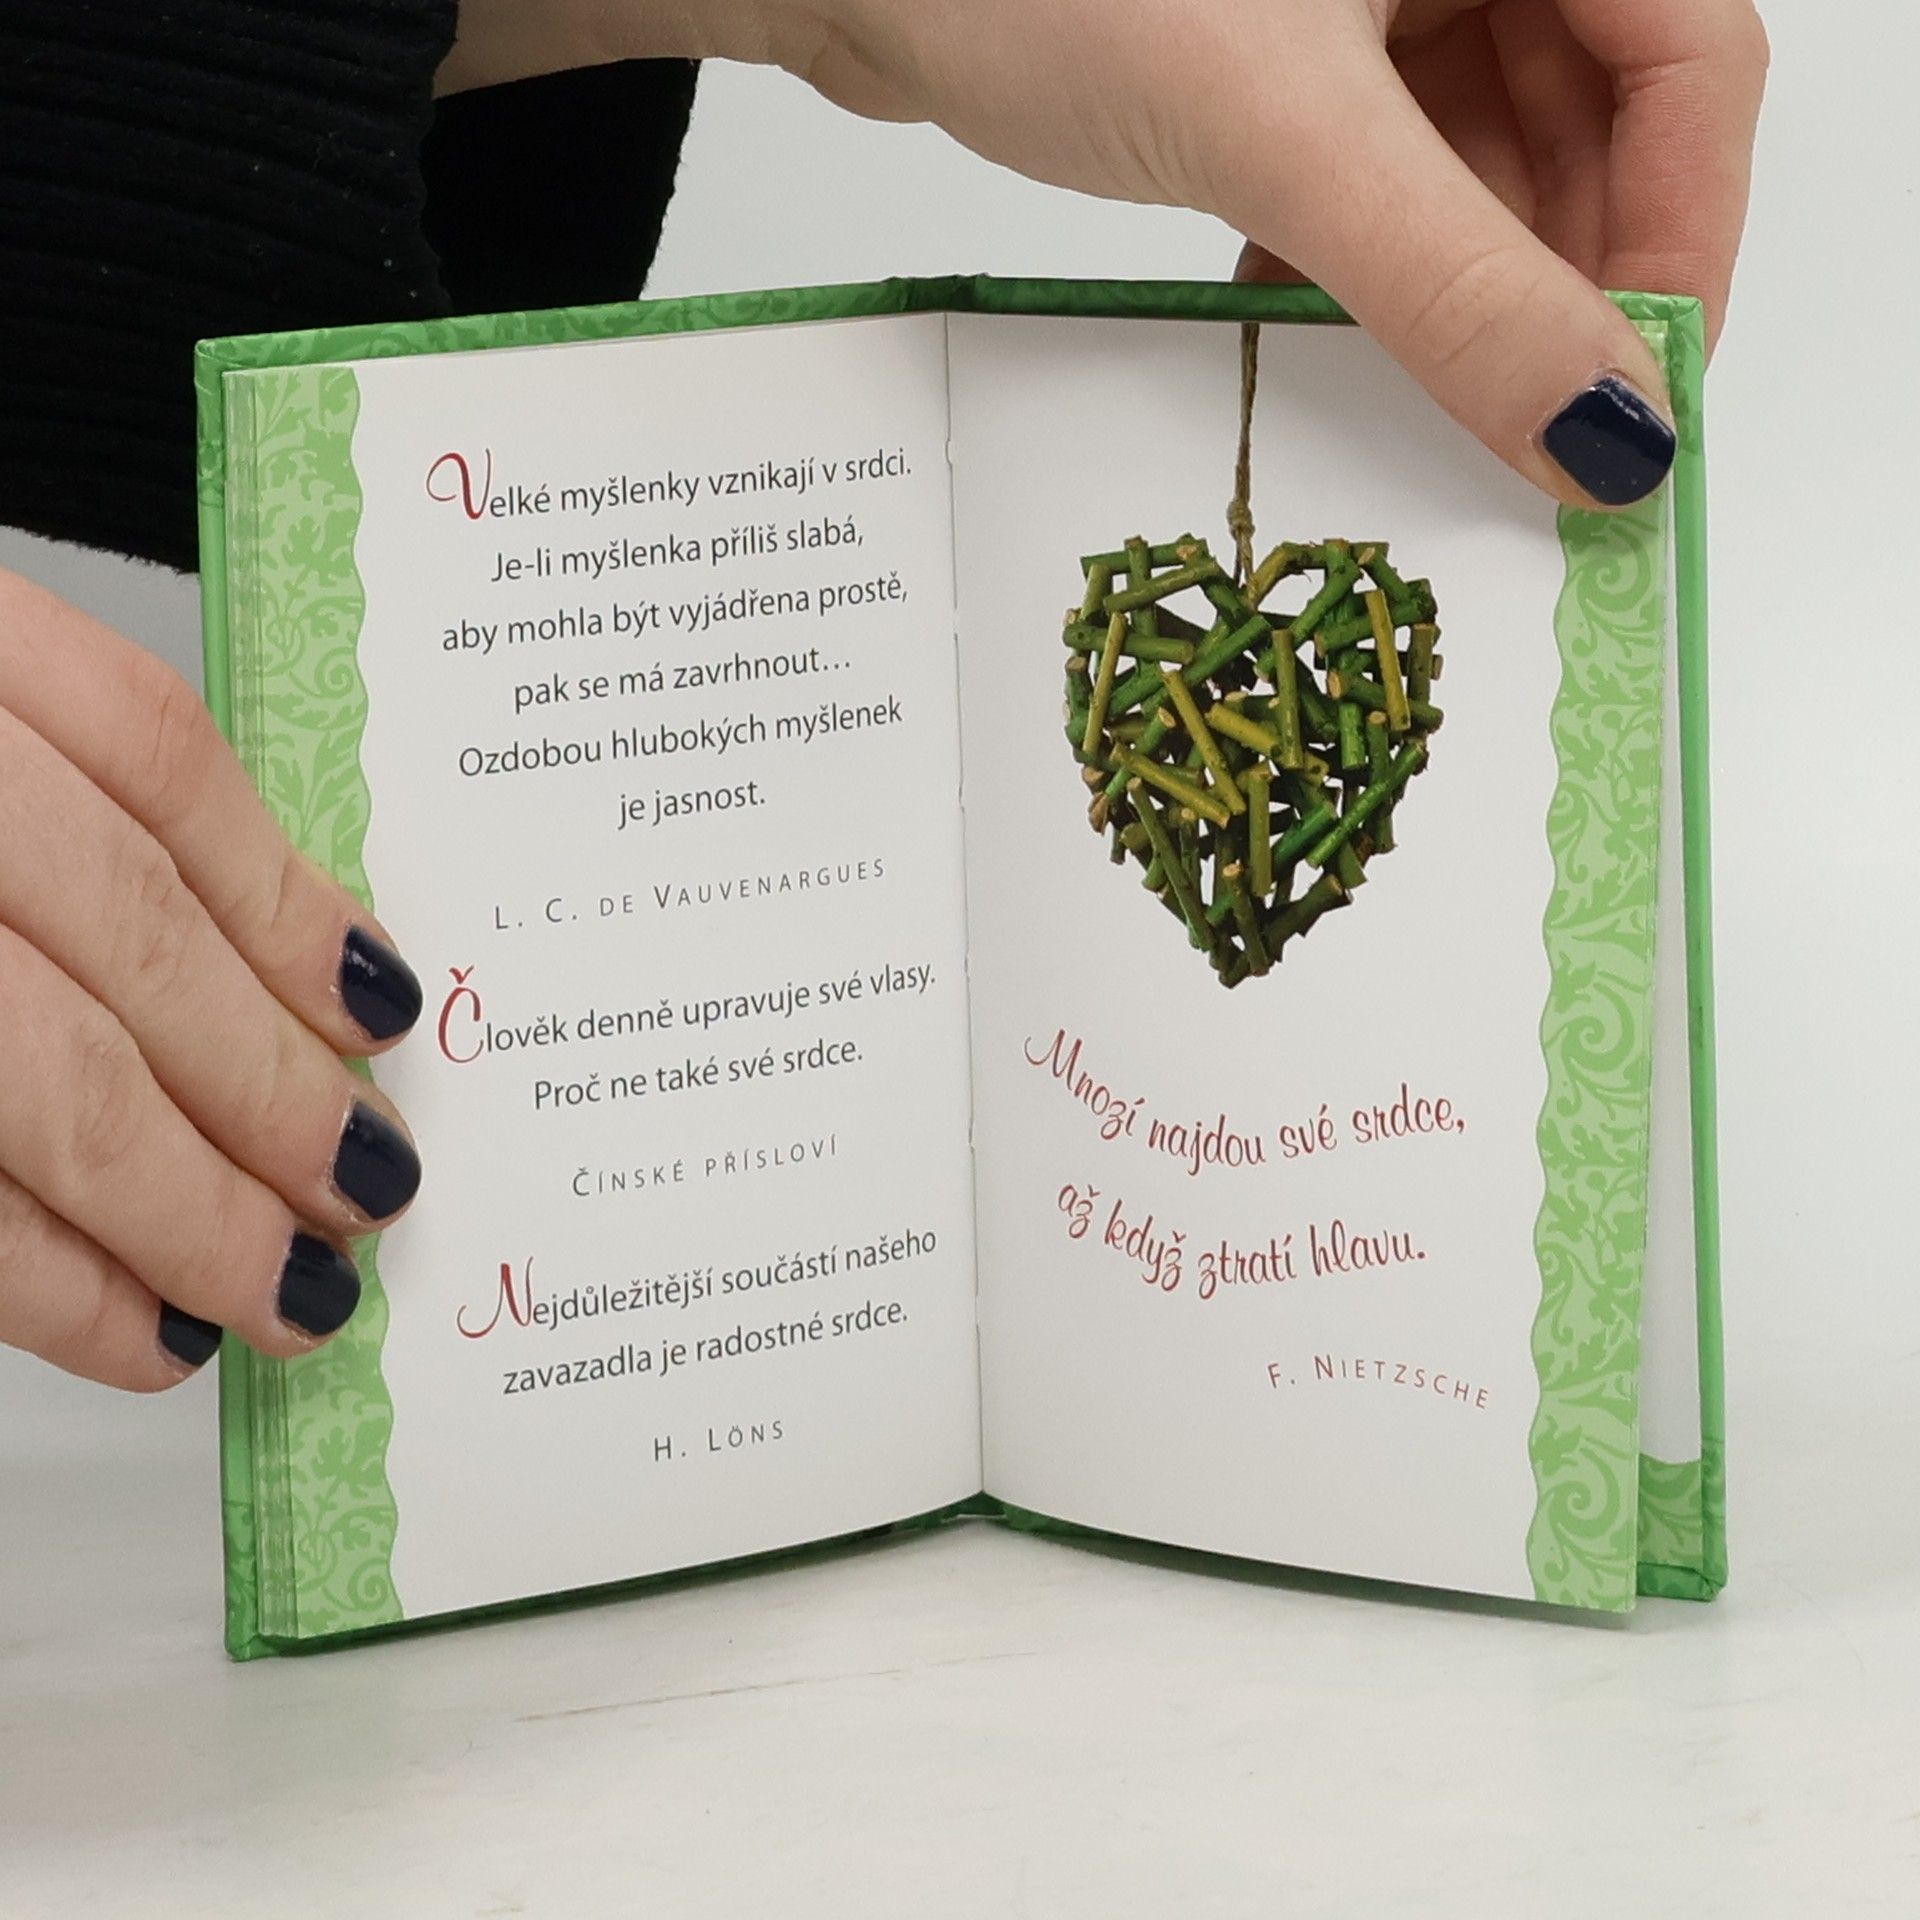 Velké myšlenky vznikají v srdci.
Je-li myšlenka příliš slabá,
aby mohla být vyjádřena prostě,
pak se má zavrhnout…
Ozdobou hlubokých myšlenek
je jasnost.
L. C. DE VAUVENARGUES
Člověk denně upravuje své vlasy.
Proč ne také své srdce.
ČÍNSKÉ PŘÍSLOVÍ
Nejdůležitější součástí našeho
zavazadla je radostné srdce.
H. LÖNS
Mnozí najdou své srdce,
až když ztratí hlavu.
F. NIETZSCHE